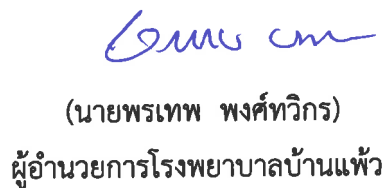 (นายพรเทพ พงศ์ทวิกร)
ผู้อำนวยการโรงพยาบาลบ้านแพ้ว